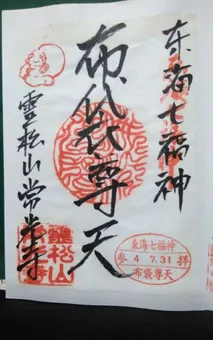 东海七福神
布袋尊天
霊松山常光寺
霊松山
東海七福神
参 4.7.31 拝
布袋尊天